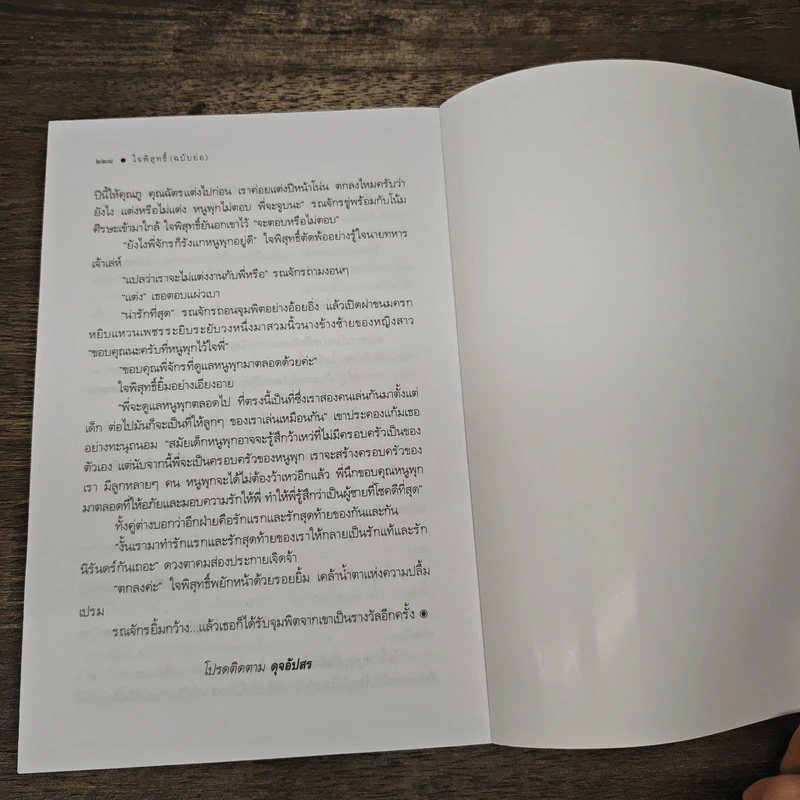 ๒๒๘ ● ใจพิสุทธิ์ (ฉบับย่อ)
ปีนี้ให้คุณภู คุณฉัตรแต่งไปก่อน เราค่อยแต่งปีหน้าโน่น ตกลงไหมครับว่า
ยังไง แต่งหรือไม่แต่ง หนูพุกไม่ตอบ พี่จะจูบนะ" รณจักรขู่พร้อมกับโน้ม
ศีรษะเข้ามาใกล้ ใจพิสุทธิ์ยันอกเขาไว้ "จะตอบหรือไม่ตอบ"
"ยังไงพี่จักรก็รังแกหนูพุกอยู่ดี" ใจพิสุทธิ์ตัดพ้ออย่างรู้ใจนายทหาร
เจ้าเล่ห์
"แปลว่าเราจะไม่แต่งงานกับพี่หรือ" รณจักรถามงอนๆ
"แต่ง" เธอตอบแผ่วเบา
"น่ารักที่สุด" รณจักรถอนจุมพิตอย่างอ้อยอิ่ง แล้วเปิดฝาขนมครก
หยิบแหวนเพชรระยิบระยับวงหนึ่งมาสวมนิ้วนางข้างซ้ายของหญิงสาว
"ขอบคุณนะครับที่หนูพุกไว้ใจพี่"
"ขอบคุณพี่จักรที่ดูแลหนูพุกมาตลอดด้วยค่ะ"
ใจพิสุทธิ์ยิ้มอย่างเอียงอาย
"พี่จะดูแลหนูพุกตลอดไป ที่ตรงนี้เป็นที่ซึ่งเราสองคนเล่นกันมาตั้งแต่
เด็ก ต่อไปมันก็จะเป็นที่ให้ลูกๆ ของเราเล่นเหมือนกัน" เขาประคองแก้มเธอ
อย่างทะนุถนอม "สมัยเด็กหนูพุกอาจจะรู้สึกว้าเหว่ที่ไม่มีครอบครัวเป็นของ
ตัวเอง แต่นับจากนี้พี่จะเป็นครอบครัวของหนูพุก เราจะสร้างครอบครัวของ
เรา มีลูกหลายๆ คน หนูพุกจะได้ไม่ต้องว้าเหว่อีกแล้ว พี่นึกขอบคุณหนูพุก
มาตลอดที่ให้อภัยและมอบความรักให้พี่ ทำให้พี่รู้สึกว่าเป็นผู้ชายที่โชคดีที่สุด"
ทั้งคู่ต่างบอกว่าอีกฝ่ายคือรักแรกและรักสุดท้ายของกันและกัน
"งั้นเรามาทำรักแรกและรักสุดท้ายของเราให้กลายเป็นรักแท้และรัก
นิรันดร์กันเถอะ" ดวงตาคมส่องประกายเจิดจ้า
"ตกลงค่ะ" ใจพิสุทธิ์พยักหน้าด้วยรอยยิ้ม เคล้าน้ำตาแห่งความปลื้ม
เปรม
รณจักรยิ้มกว้าง...แล้วเธอก็ได้รับจุมพิตจากเขาเป็นรางวัลอีกครั้ง ◉
โปรดติดตาม ดุจอัปสร